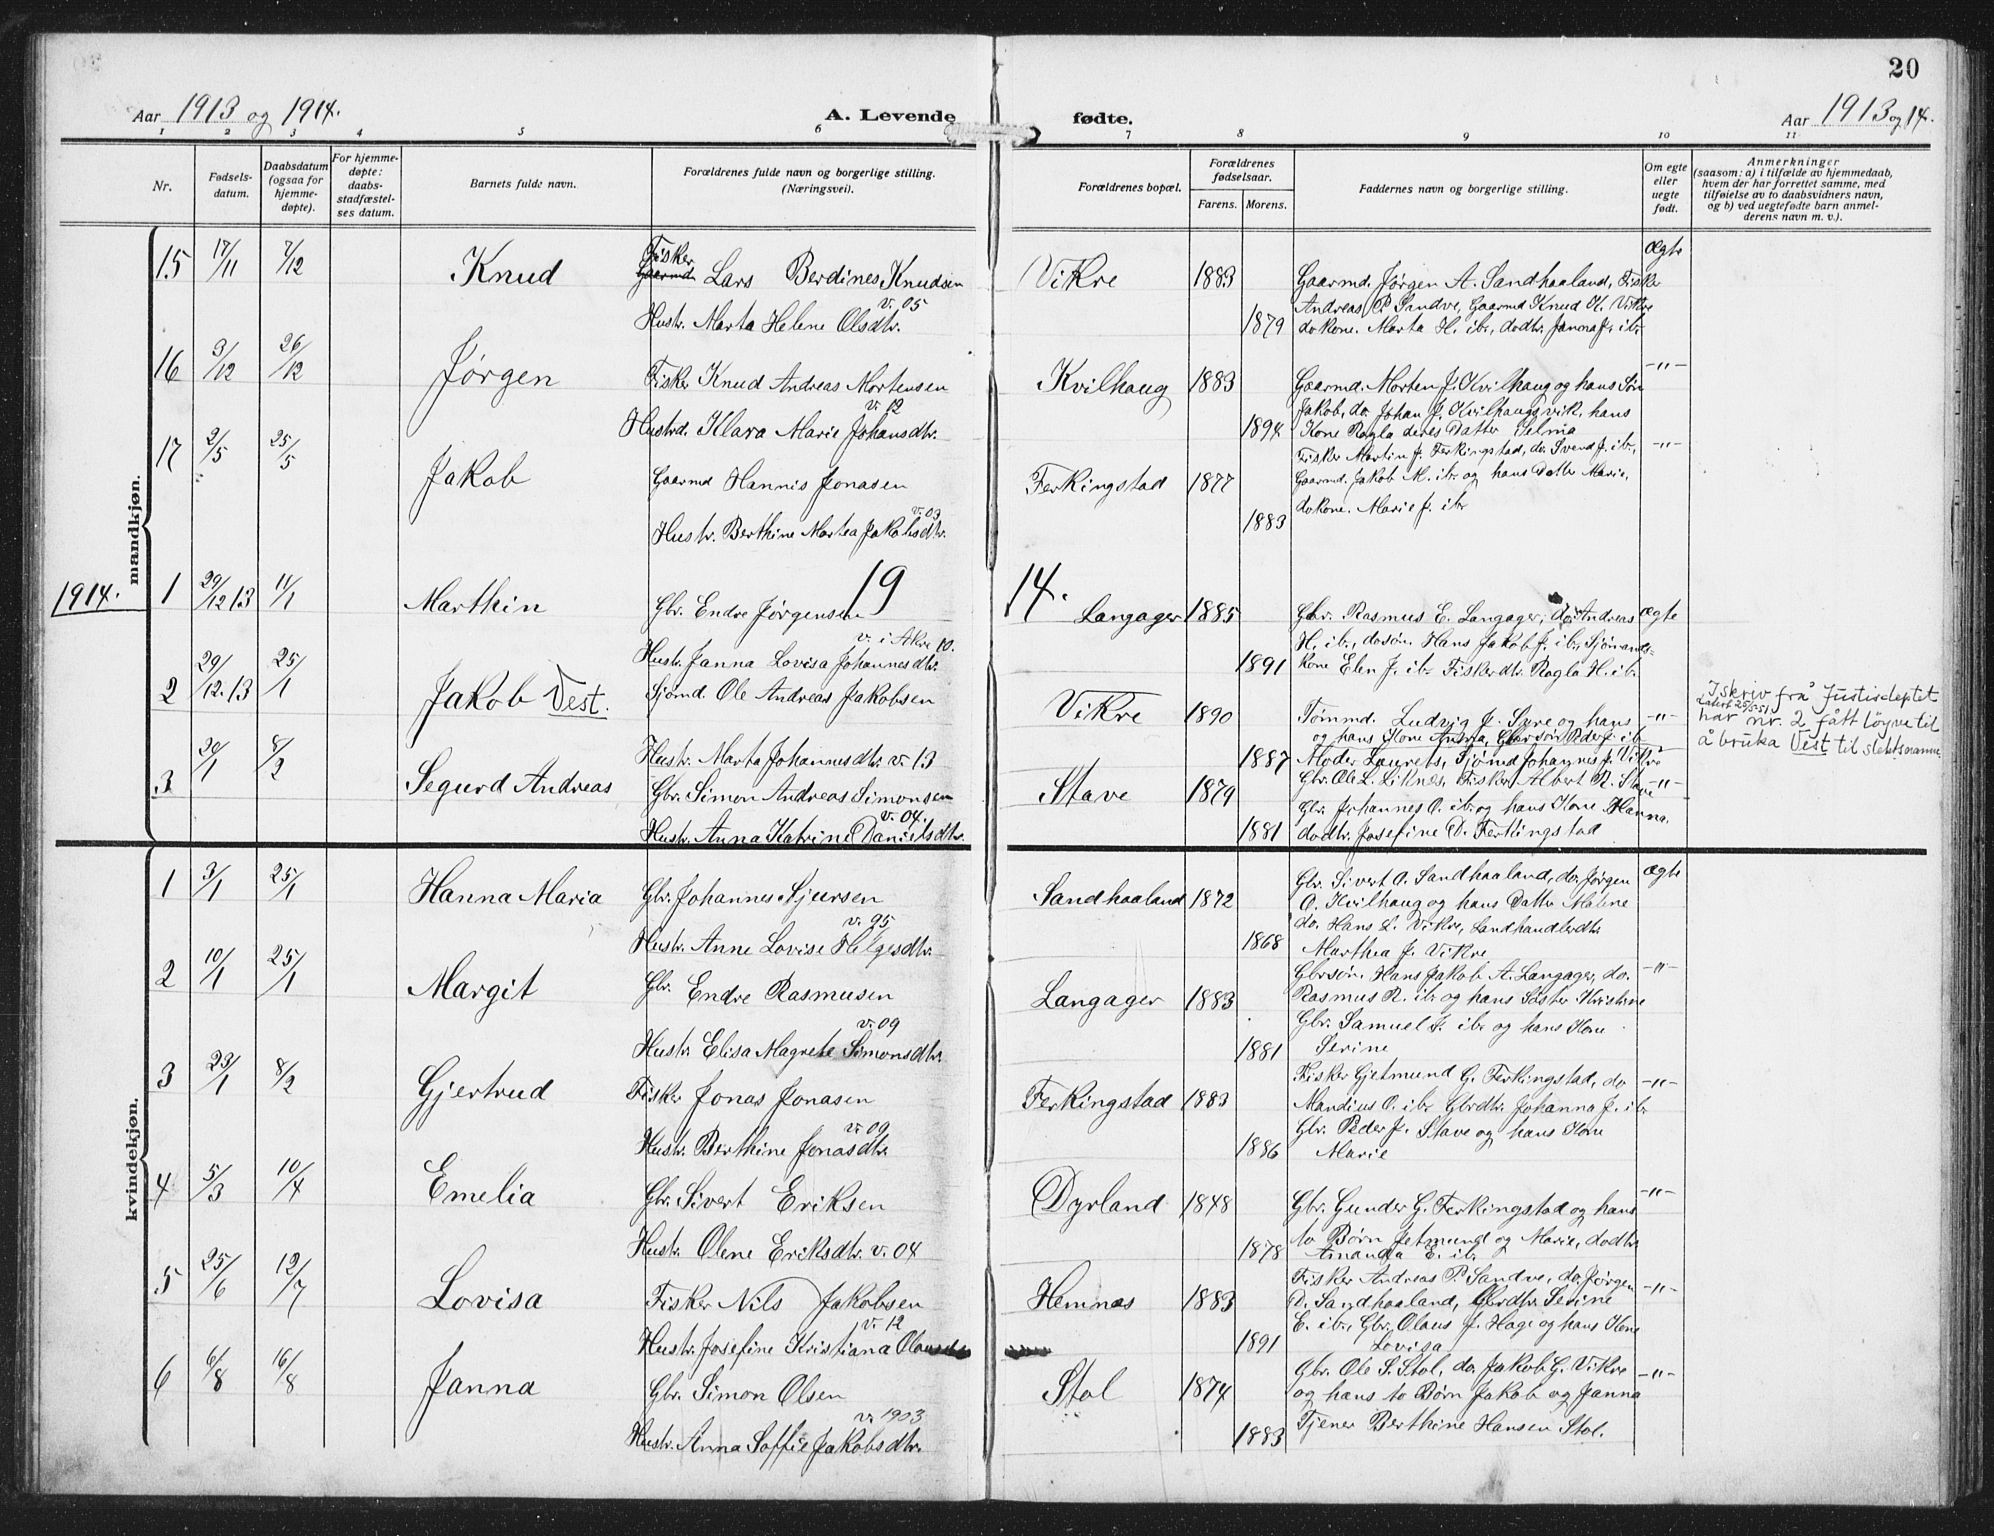 20
Aar 1913 og 1914.
A. Levende fødte.
Aar 1913 og 14.
1 2 3 4 5 6 7 8 9 10 11
Nr.
Fødsels-
datum.
Daabsdatum
(ogsaa for
hjemme-
døpte).
For hjemme-
døpte:
daabs-
stadfæstel-
ses datum.
Barnets fulde navn.
Forældrenes fulde navn og borgerlige stilling.
(Næringsvei).
Forældrenes bopæl.
Forældrenes
fødselsaar.
Farens. Morens.
Faddernes navn og borgerlige stilling.
Om egte
eller
uegte
født.
Anmerkninger
(saasom: a) i tilfælde av hjemmedaab,
hvem der har forrettet samme, med
tilføielse av to daabsvidners navn,
og b) ved uegtefødte barn anmel-
derens navn m. v.).
mandkjøn.
15 17/11 7/12 Knud
Fisker
Gaarmd. Lars Berdines Knudsen
v. 05
Hustr. Marta Helene Olsdtr.
Vikre 1883 1879
Gaarmd. Jørgen A. Sandhaaland, Fisker
Andreas P. Sandve, Gaarmd Knud K. Vikre
do kone. Marta H. ib., dodtr. Janna J. ib.
Ægte
16 3/12 26/12 Jørgen
Fisker Knud Andreas Mortensen
v. 12
Hustrd. Klara Marie Johansdtr.
Kvilhaug 1883 1894
Gaarmd. Morten J. Kvilhaug og hans Søn
Jakob, do. Johan J. Kvilhaugsvik, hans
Kone Ragla deres Datter Selma
-"-
17 2/5 25/5 Jakob
Gaarmd Hannis Jonasen
v. 03
Hustr. Berthine Martea Jakobsdtr.
Ferkingstad 1877 1883
Fisker Martin J. Ferkingstad, do. Svend J. ib.,
Gaarmd. Jakob M. ib. og hans Datter Marie,
do kone. Marie J. ib
-"-
1914.
19 14.
1 29/12 13 11/1 Marthin
Gbr. Endre Jørgensen
v. i Akre 10.
Hustr. Janna Lovisa Johannesdtr.
Langager 1885 1891
Gbr. Rasmus E. Langager, do. Andreas
H. ib., dosøn. Hans Jakob J. ib., Sjømands-
kone Elen J. ib. Fiskerdtr. Ragla H. ib.
Ægte
2 29/12.13 25/1 Jakob Vest.
Sjømd. Ole Andreas Jakobsen
Hustr. Marta Johannesdtr. v. 13
Vikre 1890 1887
Tømmd. Ludvig J. Sære og hans
og hans Kone Andrea, Gbrsøn Peder J. ib
Moder Laurets, Sjømd Johannes J. Vikre
-"-
I skriv frå Justisdeptet
datert 25/5 51
har nr. 2 fått løyve til
å bruka Vest til slektsnamn
3 20/1 8/2 Segurd Andreas
Gbr. Simon Andreas Simonsen
v. 04.
Hustr. Anna Katrine Danielsdtr.
Stave 1879 1881
Gbr. Ole L. Liknes, Fisker Albert R. Stave
Gbr. Johannes O. ib. og hans Kone Hanna,
dodtr. Josefine D. Ferkingstad
-"-
kvindekjøn.
1 3/1 25/1 Hanna Maria
Gbr. Johannes Sjursen
v. 95
Hustr. Anne Lovise Helgesdtr.
Sandhaaland 1872 1868
Gbr. Sivert O. Sandhaaland, do. Jørgen
O. Kvilhaug og hans Datter Malene
do. Hans L. Vikre, Landhandlerdtr.
Marthea J. Vikre
Ægte
2 10/1 25/1 Margit
Gbr. Endre Rasmusen
v. 09
Hustr. Elisa Magrete Simonsdtr.
Langager 1883 1881
Gbrsøn. Hans Jakob A. Langager, do.
Rasmus R. ib. og hans Søster Kristine
Gbr. Samuel J. ib. og hans Kone
Serine
-"-
3 23/1 8/2 Gjertrud
Fisker Jonas Jonasen
v. 09
Hustr. Berthine Jonasdtr.
Ferkingstad 1883 1886
Fisker Gjetmund G. Ferkingstad, do
Mandius O. ib. Gbrdtr. Johanna J. ib
Gbr. Peder J. Stave og hans Kone
Marie
-"-
4 5/3 10/4 Emelia
Gbr. Sivert Eriksen
Hustr. Olene Eriksdtr. v. 04
Dyrland 1848 1878
Gbr. Gunder G. Ferkingstad og hans
to Børn Jetmund og Marie, dodtr.
Amanda E. ib.
-"-
5 25/6 12/7 Lovisa
Fisker Nils Jakobsen
v. 12
Hustr. Josefine Kristiana
Hemnes 1883 1891
Fisker Andreas P. Sandve, do. Jørgen
D. Sandhaaland, Gbrdtr. Serine
E. ib., Gbr. Olaus J. Hage og hans Kone
Lovisa
-"-
6 6/8 16/8 Janna
Gbr. Simon Olsen
v. 1903
Hustr. Anna Soffie Jakobsdtr.
Stol 1874 1883
Gbr. Ole S. Stol, do. Jakob G. Vikre
og hans to Børn Jakob og Janna
Tjener Berthine Hansen Stol.
-"-